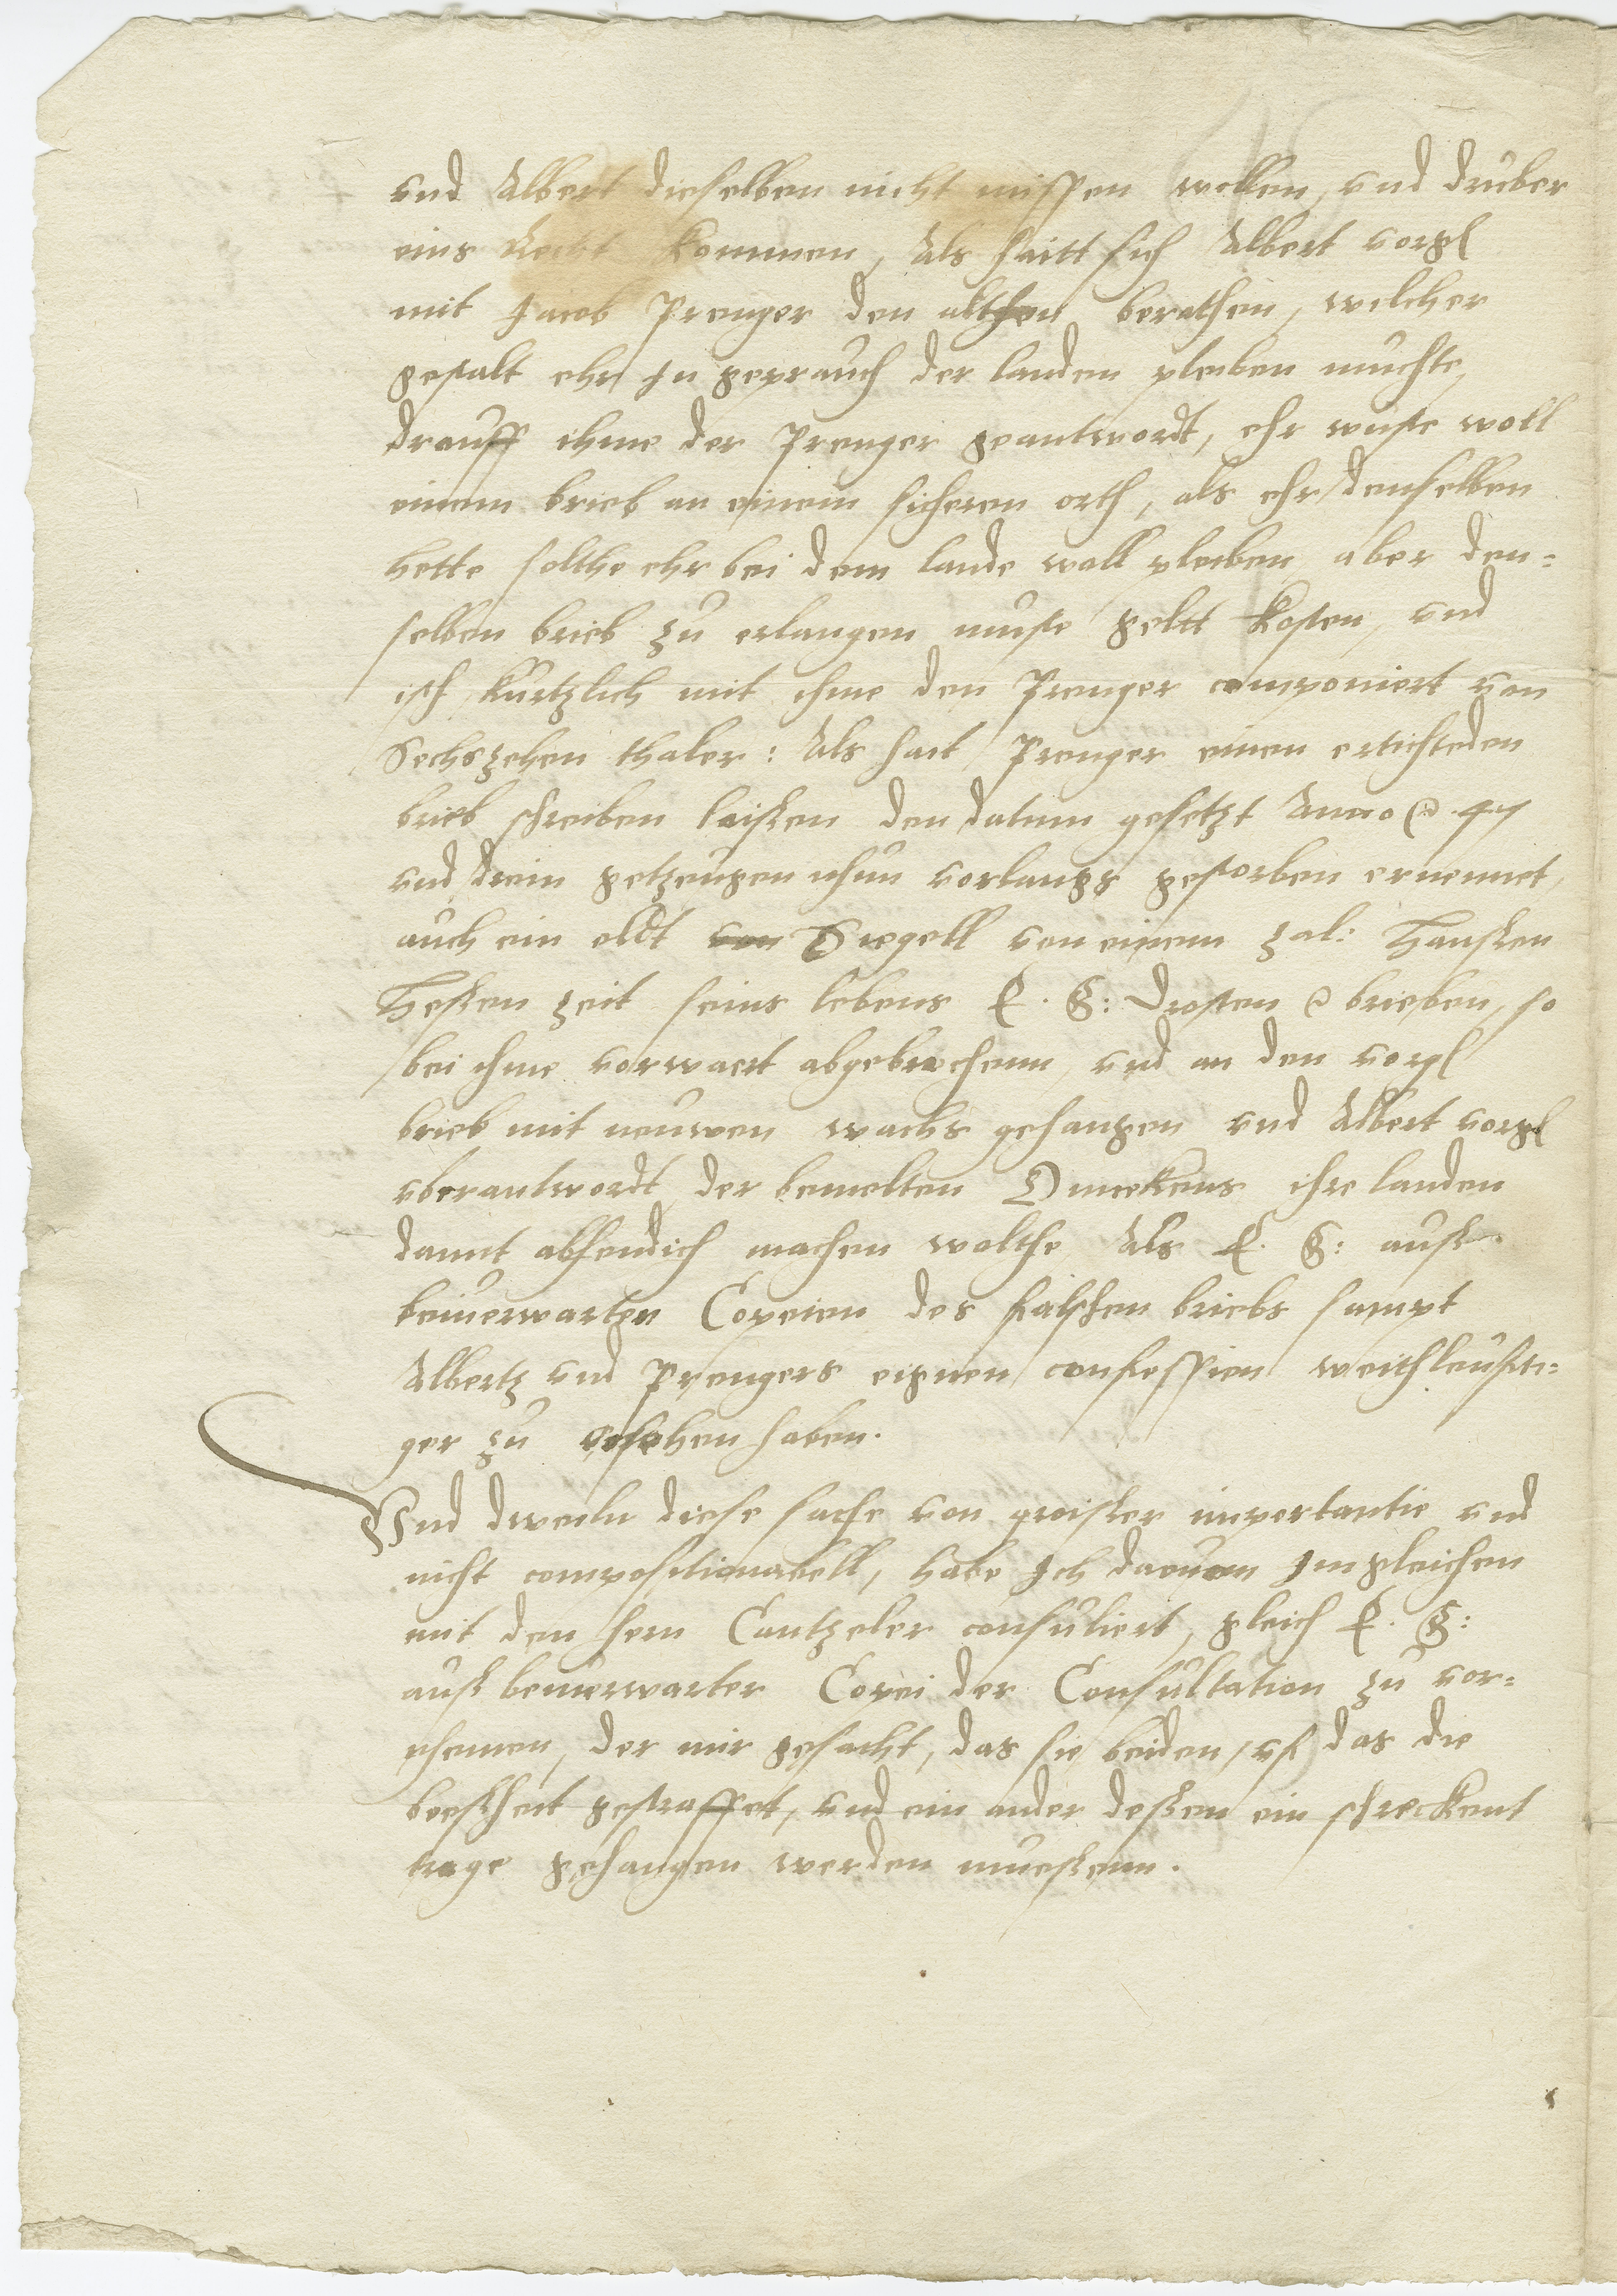 vnd Albert dieselben nicht missen wollen, vnd druber
eins Recht kommen, Als haitt sich Albert vorgl
mit Jacob Prenger den althen berathen, welcher
gestalt ehr In geprauch der landen pleiben muchte,
drauff ihme der Prenger geantwordt, ehr wuste woll
einem brieb an einem sicheren orth, als ehr denselben
hette solthe ehr bei dem lande woll pleiben, aber den=
selben brieb zu erlangen muste geltt kosten, vnd
ist kurtzlich mit ihme den Prenger componiert von
Sechszehen thaler: Als hait Prenger einen ertichteden
brieb schreiben laissen den datum gesetzt Anno 47
vnd drein getzeugen nhun vorlangs gestorben ernennet,
auch ein oldt Siegell von einem zal: Hanssen
Hessen zeit seins lebens E. G: Drosten brieben, so
bei ihme vorwaert abgebrochenn, vnd an den vorgl
brieb mit neuwen wachs gehangen vnd Albert vorgl
vberantwordt, der bemelten ihre landen
damit abhendich machen wolthe, Als E. G: auss
beiuerwarten Copeien des falschen briebs sampt
Albertz vnd Prengers eignen confession weithleufti=
ger zu ersehen haben.
Vnd dweiln diese sache von groisser importantie vnd
nicht compositionabell, habe Ich daruon Imgleichen
mit den hern Cantzeler consuliert, gleich E. G:
auss beiuerwarter Copei der Consultation zu vor=
nhemen, der mir gesacht, das sie beiden, vf das die
bossheit gestraffet, vnd ein ander dessen ein schreckent
trage gehangen werden muessenn.